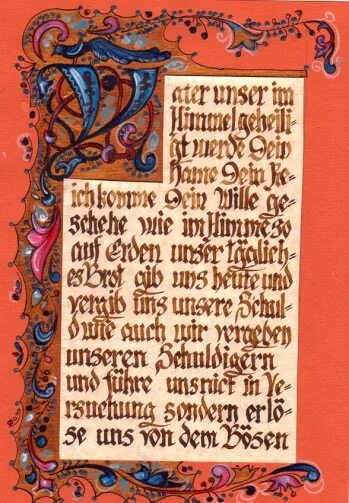 Vater unser im
Himmel geheili=
gt werde Dein
Name Dein Re=
ich komme Dein Wille ge=
schehe wie im Himmel so
auf Erden unser täglich=
es Brot gib uns heute und
vergib uns unsere Schul=
d wie auch wir vergeben
unseren Schuldigern
und führe uns nicht in Ve=
rsuchung sondern erlö=
se uns von dem Bösen